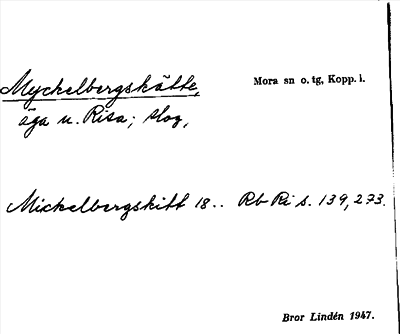 Myckelbergskätte,
Mora sn o. tg, Kopp. l.
äga u. Risa; skog,
Mickelbergskitt 18.. Rb Ri s. 139, 273.
Bror Lindén 1947.